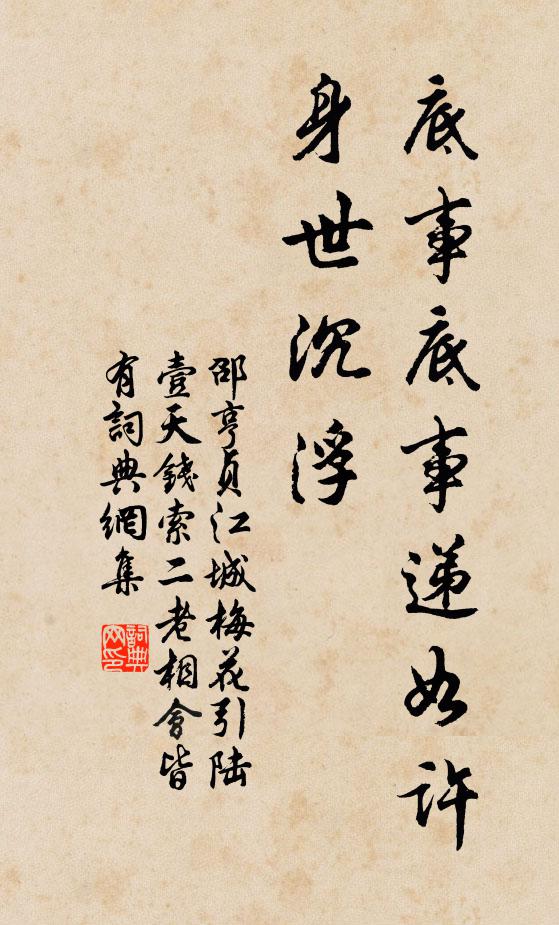 底事底事遞如許
身世沉浮
邵亨貞江城梅花引陸
壹天錢索二老相會皆
有詞典網集
詞典
網印